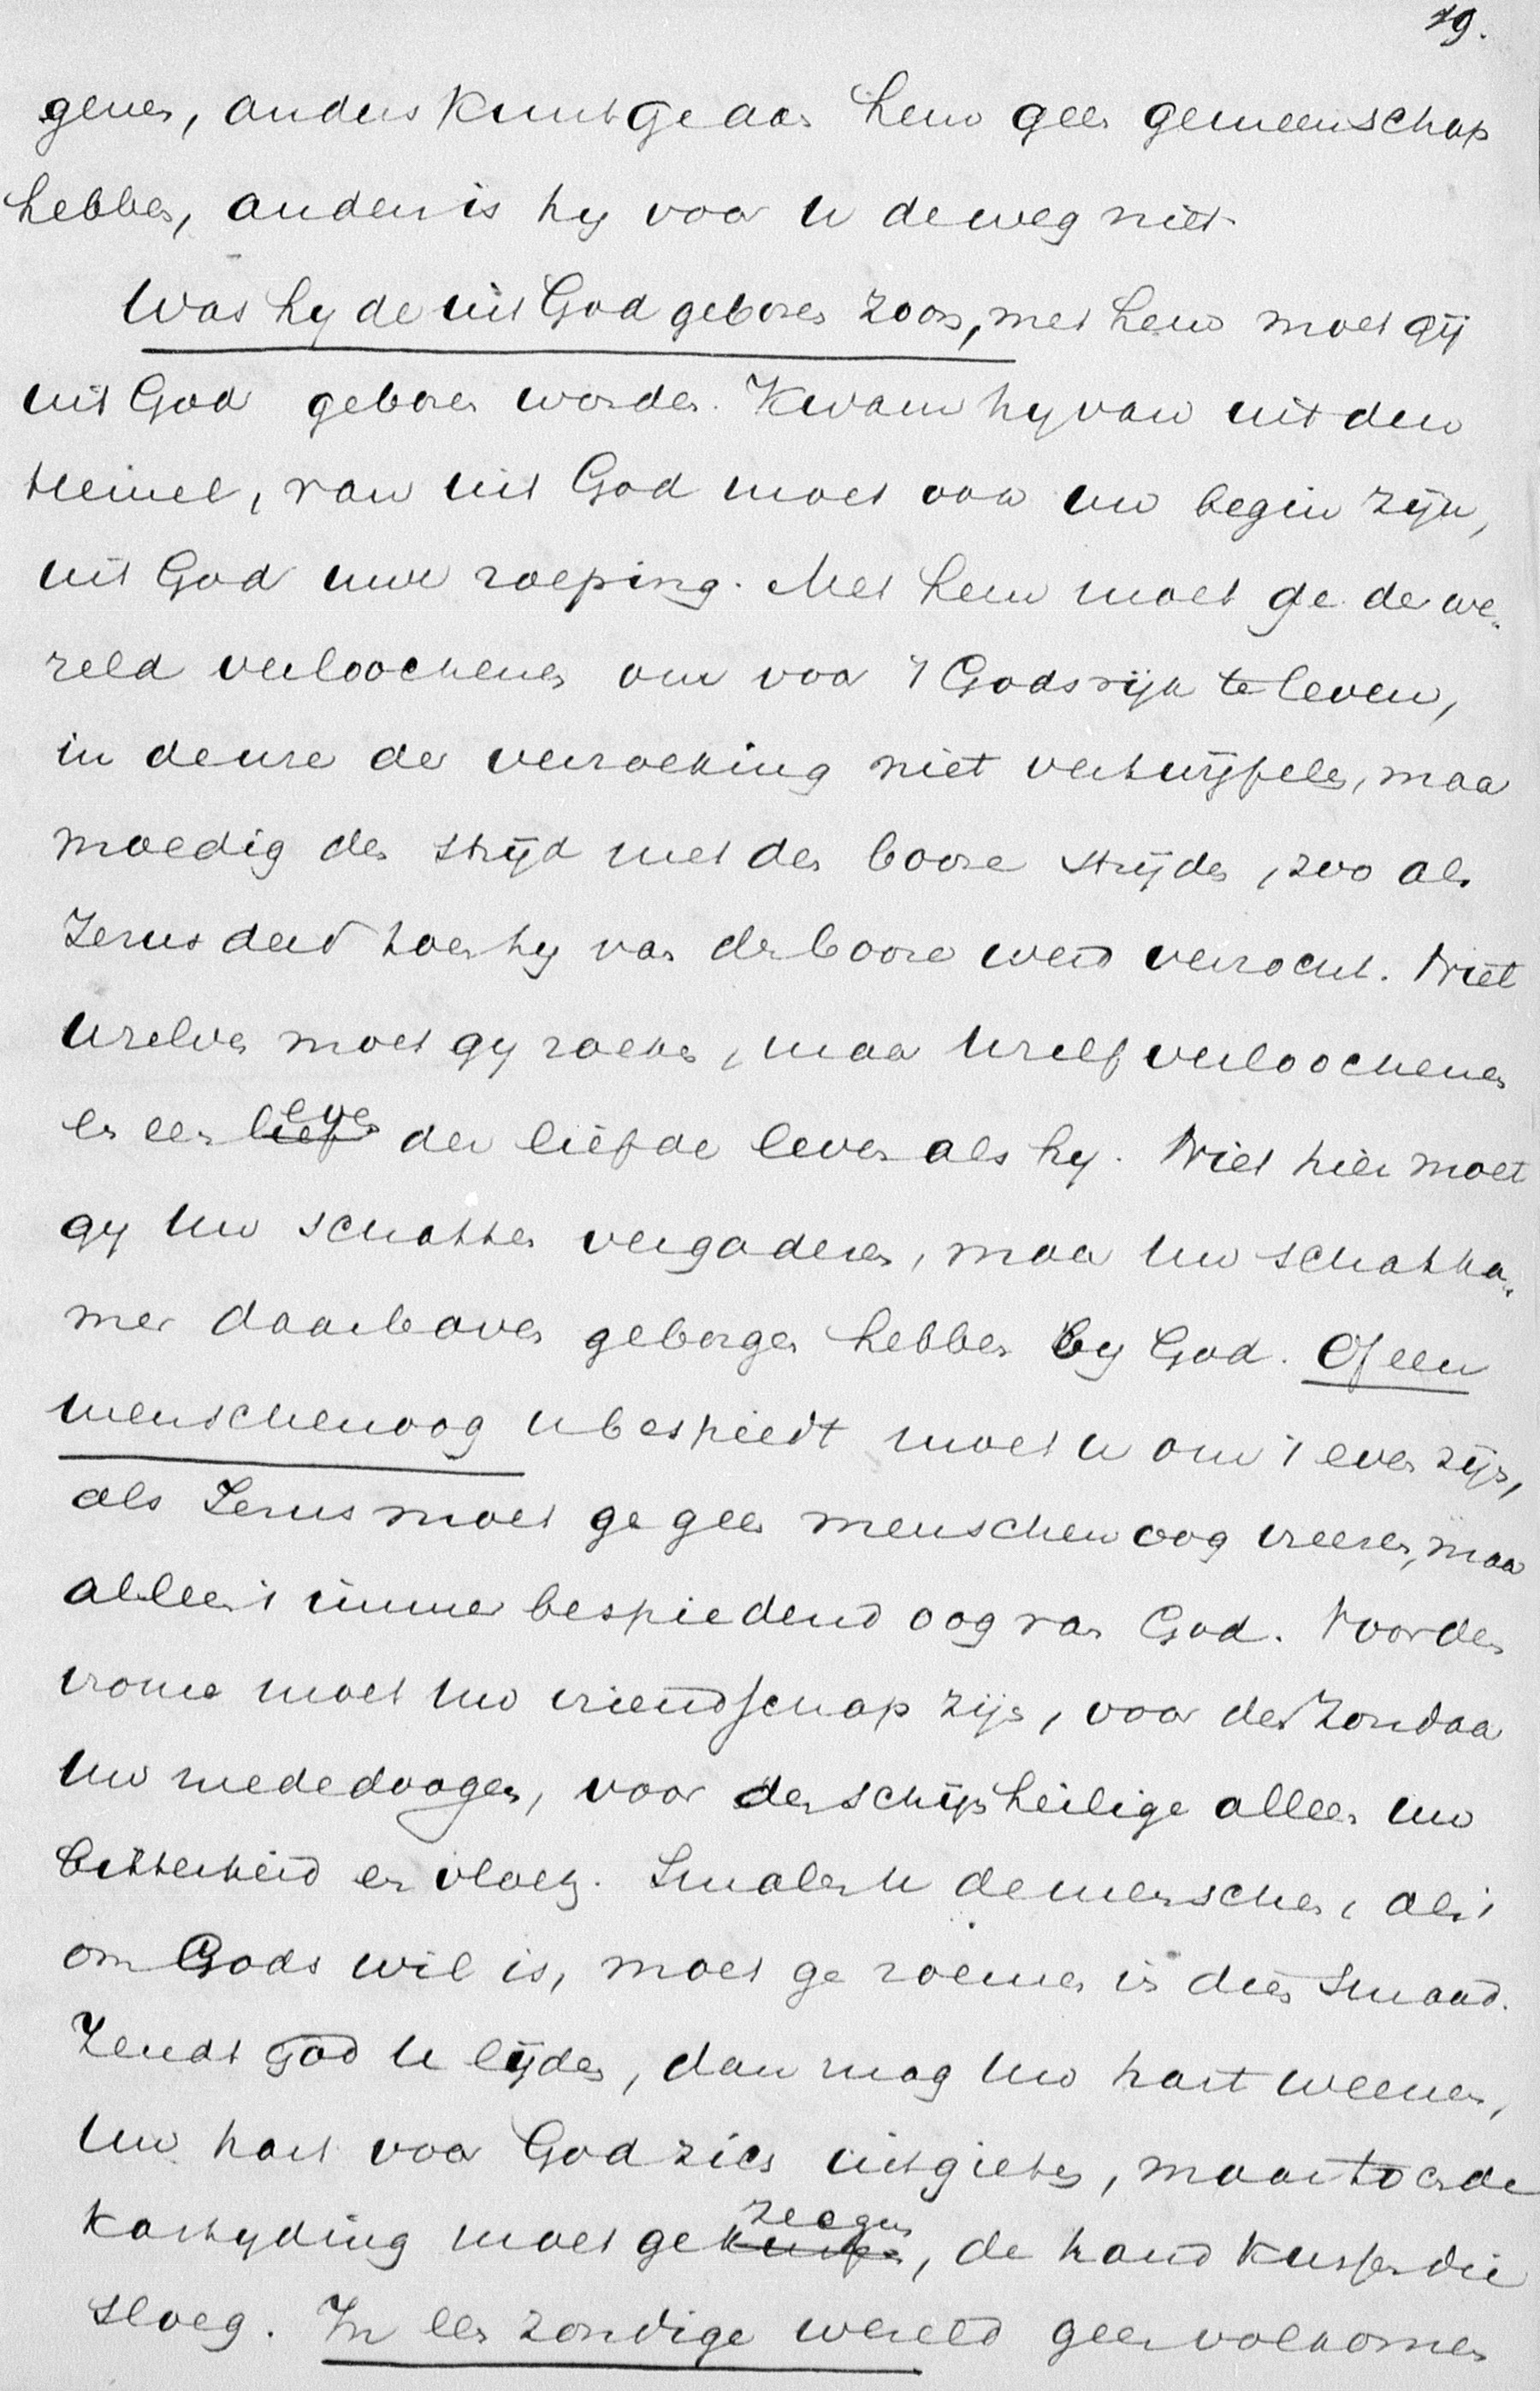 19.
genen, anders kunt ge aan hem geen gemeenschap
hebben, anders is hy voor u de weg niet.
Was hy de uit God geboren zoon, met hem moet gij
uit God geboren worden. Kwam hy van uit den
Hemel, van uit God moet ook uw begin zijn,
uit God uwe roeping. Met hem moet ge de we-
reld verloochenen om voor 't Godsrijk te leven,
in deure der verzoeking niet vertwijfelen, maar
moedig den strijd met den booze strijden, zoo als
Jezus deed toen hy van den booze werd verzocht. Niet
Uzelven moet gy zoeken, maar Uzelf verloochenen
en een leven der liefde leven als hy. Niet hier moet
gy Uw schatten vergaderen, maar Uw schatka-
mer daarboven geborgen hebben by God. Of een
menschenoog U bespiedt moet u om 't even zijn,
als Jezus moet ge geen menschen oog vreezen, maar
alleen 't immer bespiedend oog van God. Voor den
vrome moet Uw vriendschap zijn, voor den Zondaar
Uw mededoogen, voor den schijnheilige alleen Uw
bitterheid en vloek. Smaden U de menschen, als 't
om Gods wil is, moet ge roemen in dien Smaad.
Zendt God U lijden, dan mag Uw hart weenen,
Uw hart voor God zich uitgieten, maar toch de
kastyding moet ge zeegnen, de hand kussen die
sloeg. In een zondige wereld geen volkomen